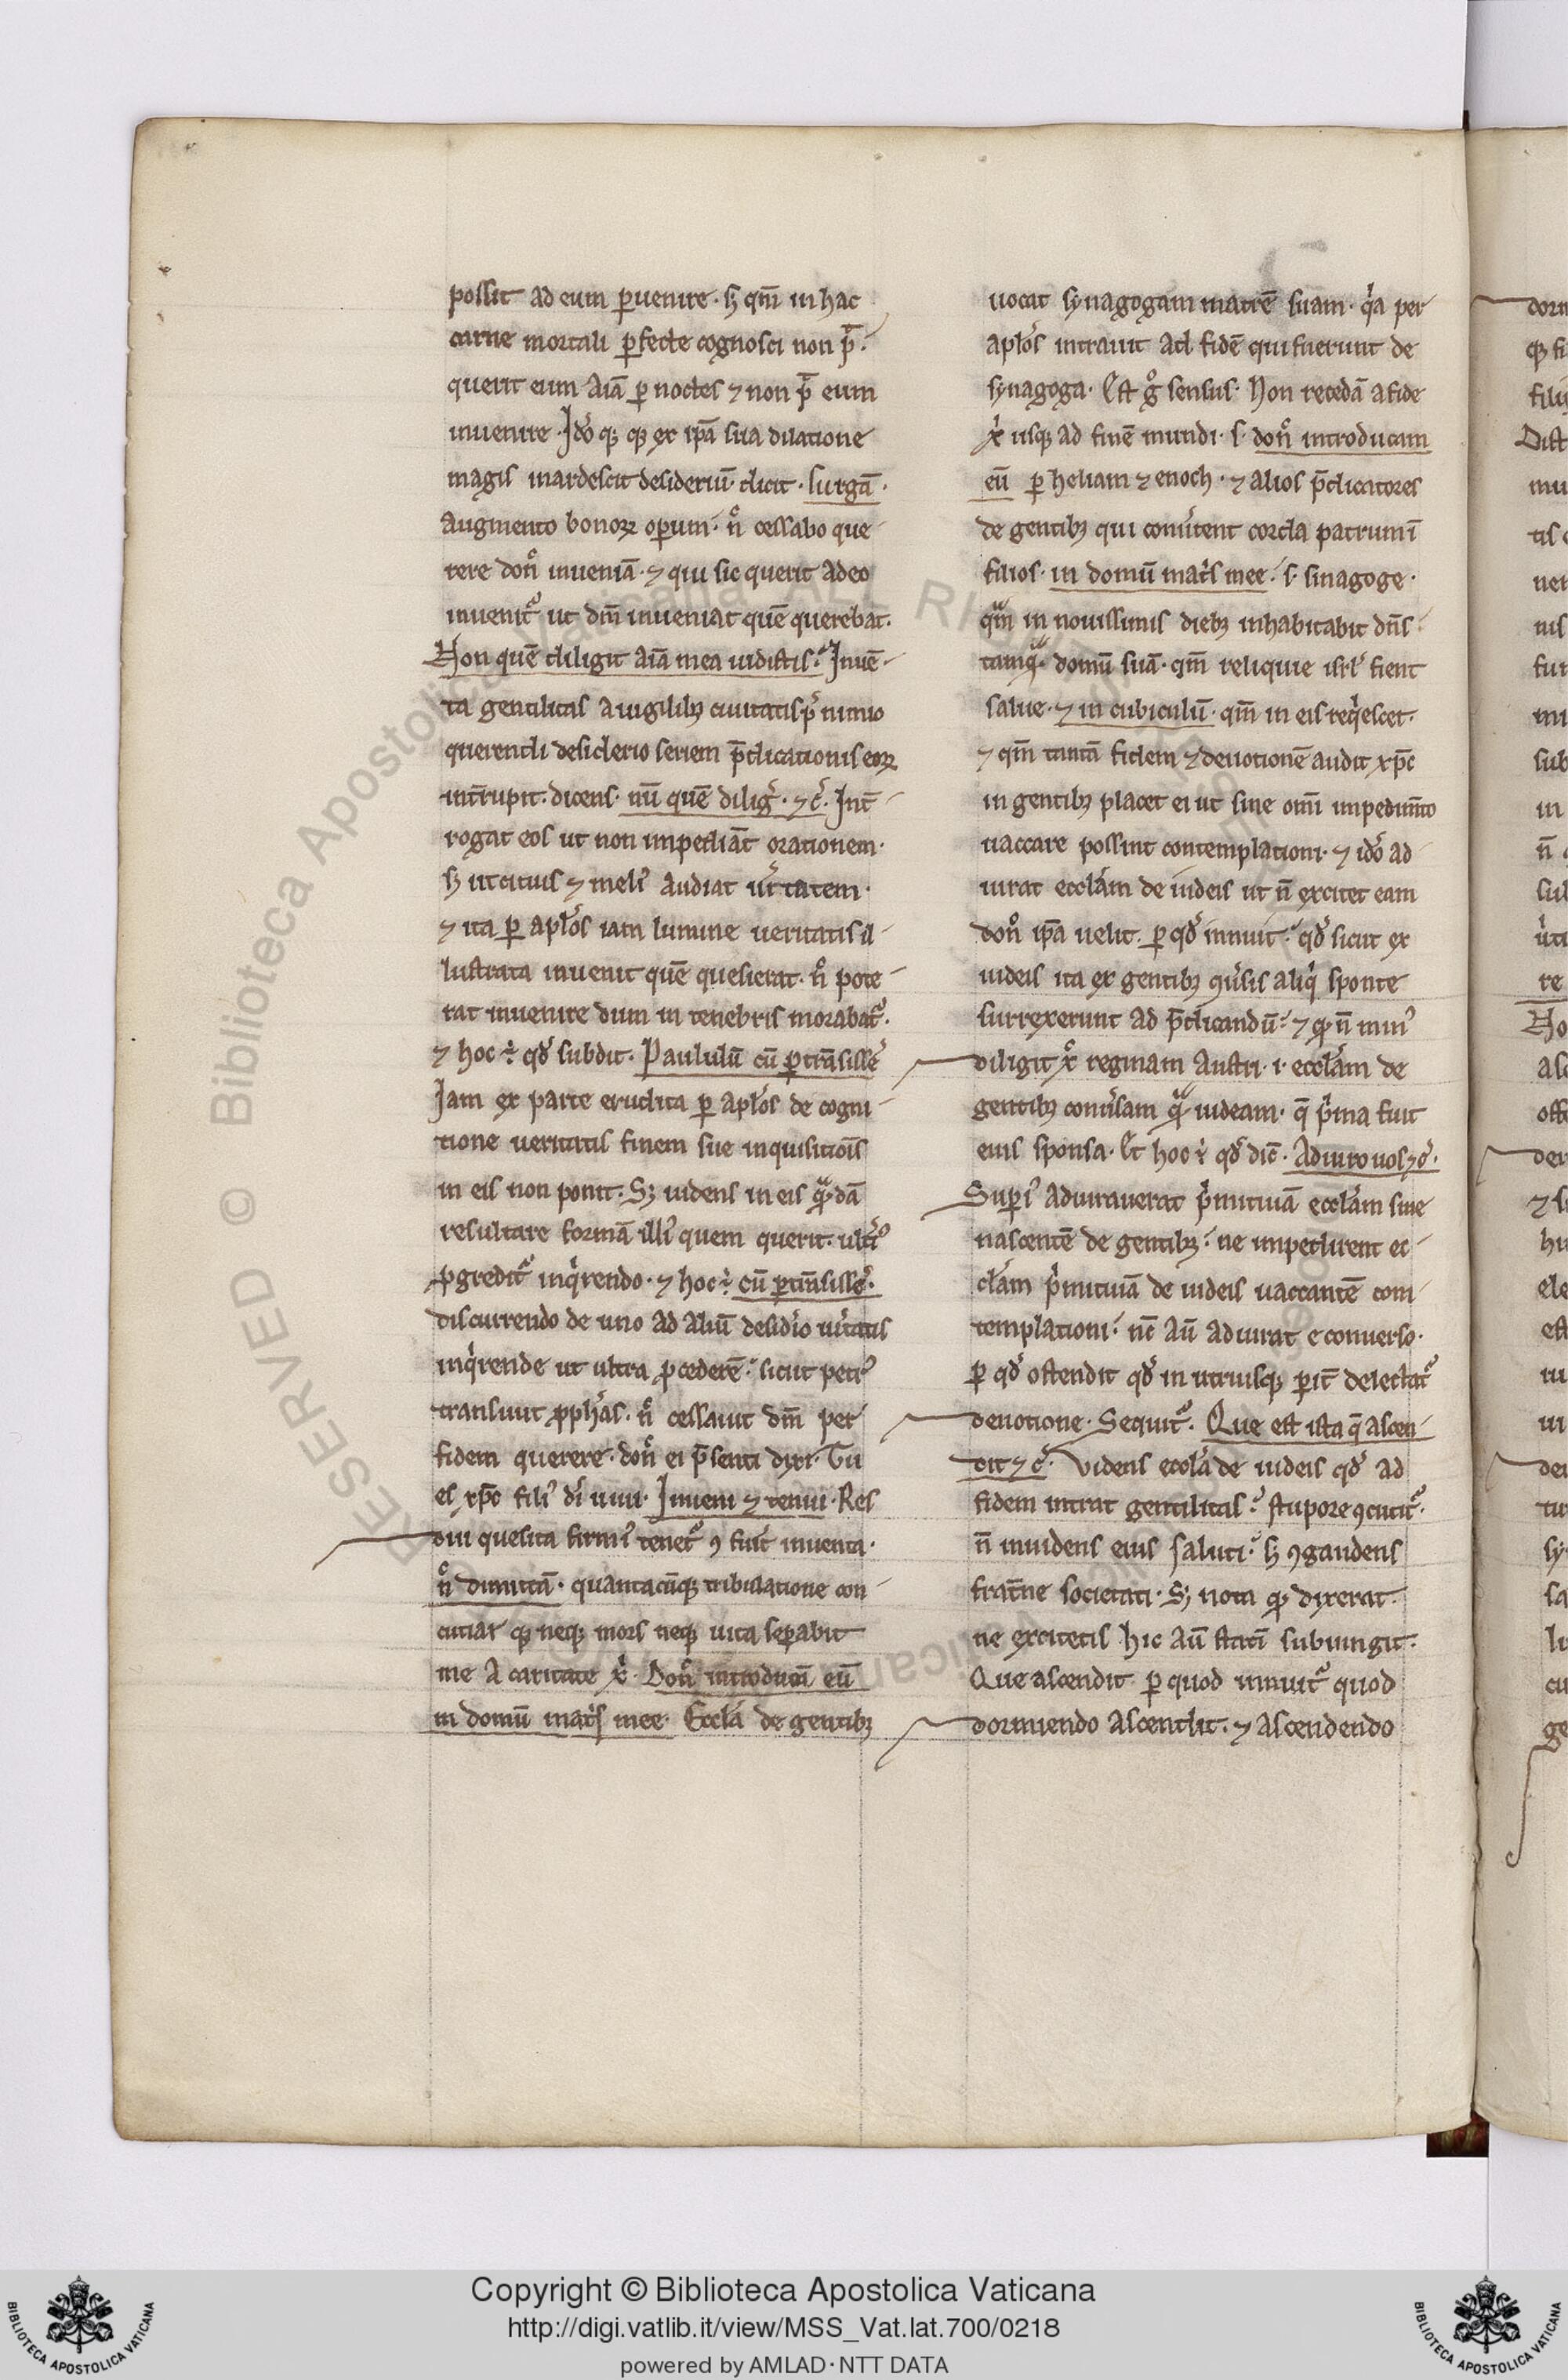 possit ad eum ꝑuenire · sꝫ qm̄ in hac
carne mortali ꝑfecte cognosci non pͭ ·
querit eum aīa ꝑ noctes ⁊ non pͭ eum
inuenire · Id̓o qꝫ qꝫ ex ip̄a sua dilatione
magis inardescit desideriū · dicit · surgā ·
augmento bonoꝝ oꝑum · n̊ cessabo que
rere don̊ inueniā · ⁊ qui sic querit adeo
inuenit᷑ ut dn̄m inueniat quē querebat ·
Non quē diligit aīa mea uidistis · Inuē
ta gentilitas a uigilibꝫ ciuitatis p᷑ nimio
querendi desiderio seriem p̄dicationis eoꝝ
int̄rupit · dicens · nū quē dilig᷑ · ⁊ c̓ · Int̄
rogat eos ut non impediāt orationem ·
sꝫ ut citius ⁊ meli᷒ audiat ūitatem ·
⁊ ita ꝑ aplo̓s iam lumine ueritatis il
lustrata inuenit quē quesierat · n̊ pote
rat inuenire dum in tenebris morabat᷑ ·
⁊ hoc ÷ qd̓ subdit · Paululū cū ꝑtrāsisse᷑
Iam ex parte erudita ꝑ aplo̓s de cogni
tione ueritatis finem sue inquisitiōis
in eis non ponit · Sꝫ uidens in eis qͣdā
resultare formā illi᷒ quem querit · ult̓i᷒
ꝓgredit᷑ inqͥrendo · ⁊ hoc ÷ cū ꝑtrāsisse᷑ ·
discurrendo de uno ad aliū desid̓io ūitatis
inqͥrende ut ultra ꝓcederē · sicut petr᷒
transiuit ꝓpha̓s · n̊ cessauit dn̄m per
fidem querere · don̊ ei p̄senti dixi · Tu
es xp̄c fili᷒ di̓ uiui · Inueni ⁊ tenui · Res
diu quesita firmi᷒ tenet᷑ ꝯ fuīt inuenta ·
n̊ dimittā · quantacūqꝫ tribulatione con
cutiar qꝫ neqꝫ mors neqꝫ uita seꝑabit
me a caritate xͥ · Don̊ introducā eū
in domū mat̓s mee · Eccl̓a de gentibꝫ
uocat synagogam matrē suam · qͥa per
aplo̓s intrauit ad fidē qui fuerunt de
synagoga · Est g̊ sensus · Non recedā a fide
xͥ usqꝫ ad finē mundi · s · don̊ introducam
eū ꝑ heliam ⁊ enoch · ⁊ alios p̄dicatores
de gentibꝫ qui conu̓tent corda patrum ī
filios · in domū mat̓s mee · s · sinagoge ·
qm̄ in nouissimis diebꝫ inhabitabit dn̄s
tamqͣ · domū suā · qm̄ reliquie isrl̓ fient
salue · ⁊ in cubiculū · qm̄ in eis reqͥescet ·
⁊ qm̄ tantā fidem ⁊ deuotionē audit xp̄c
in gentibꝫ placet ei ut sine om̄i impedim̄to
uaccare possint contemplationi · ⁊ id̓o ad
iurat eccl̓am de iudeis ut n̄ excitet eam
don̊ ip̄a uelit · ꝑ qd̓ innuit · qd̓ sicut ex
iudeis ita ex gentibꝫ ꝯu̓sis aliqͥ sponte
surrexerunt ad p̄dicandū · ⁊ qꝫ n̄ min᷒
diligit xͥ reginam austri · i · eccl̓am de
gentibꝫ conu̓sam qͣ iudeam · q̄ pͥma fuit
eius sponsa · Et hoc ÷ qd̓ dic̄ · Adiuro uos ⁊ c̓ ·
Superi᷒ adiurauerat pͥmitiuā eccl̓am siue
nascentē de gentibꝫ · ne impedirent ec
cl̓am pͥmitiuā de iudeis uaccantē con
templationi · nc̄ aū adiurat e conuerso ·
ꝑ qd̓ ostendit qd̓ in utriusqꝫ ꝑit̄ delectat᷑
deuotione · Sequit᷑ · Que est ista q̄ ascen
dit ⁊ c̓ · Videns eccl̓a de iudeis qd̓ ad
fidem intrat gentilitas · stupore ꝯcutit᷑ ·
n̄ inuidens eius saluti · sꝫ ꝯgaudens
frat̄ne societati · Sꝫ nota qꝫ dixerat ·
ne excitetis hic aū statī subiungit ·
Que ascendit ꝑ quod innuit᷑ quod
dormiendo ascendit · ⁊ ascendendo
Copyright © Biblioteca Apostolica Vaticana
http://digi.vatlib.it/view/MSS_Vat.lat.700/0218
powered by AMLAD · NTT DATA